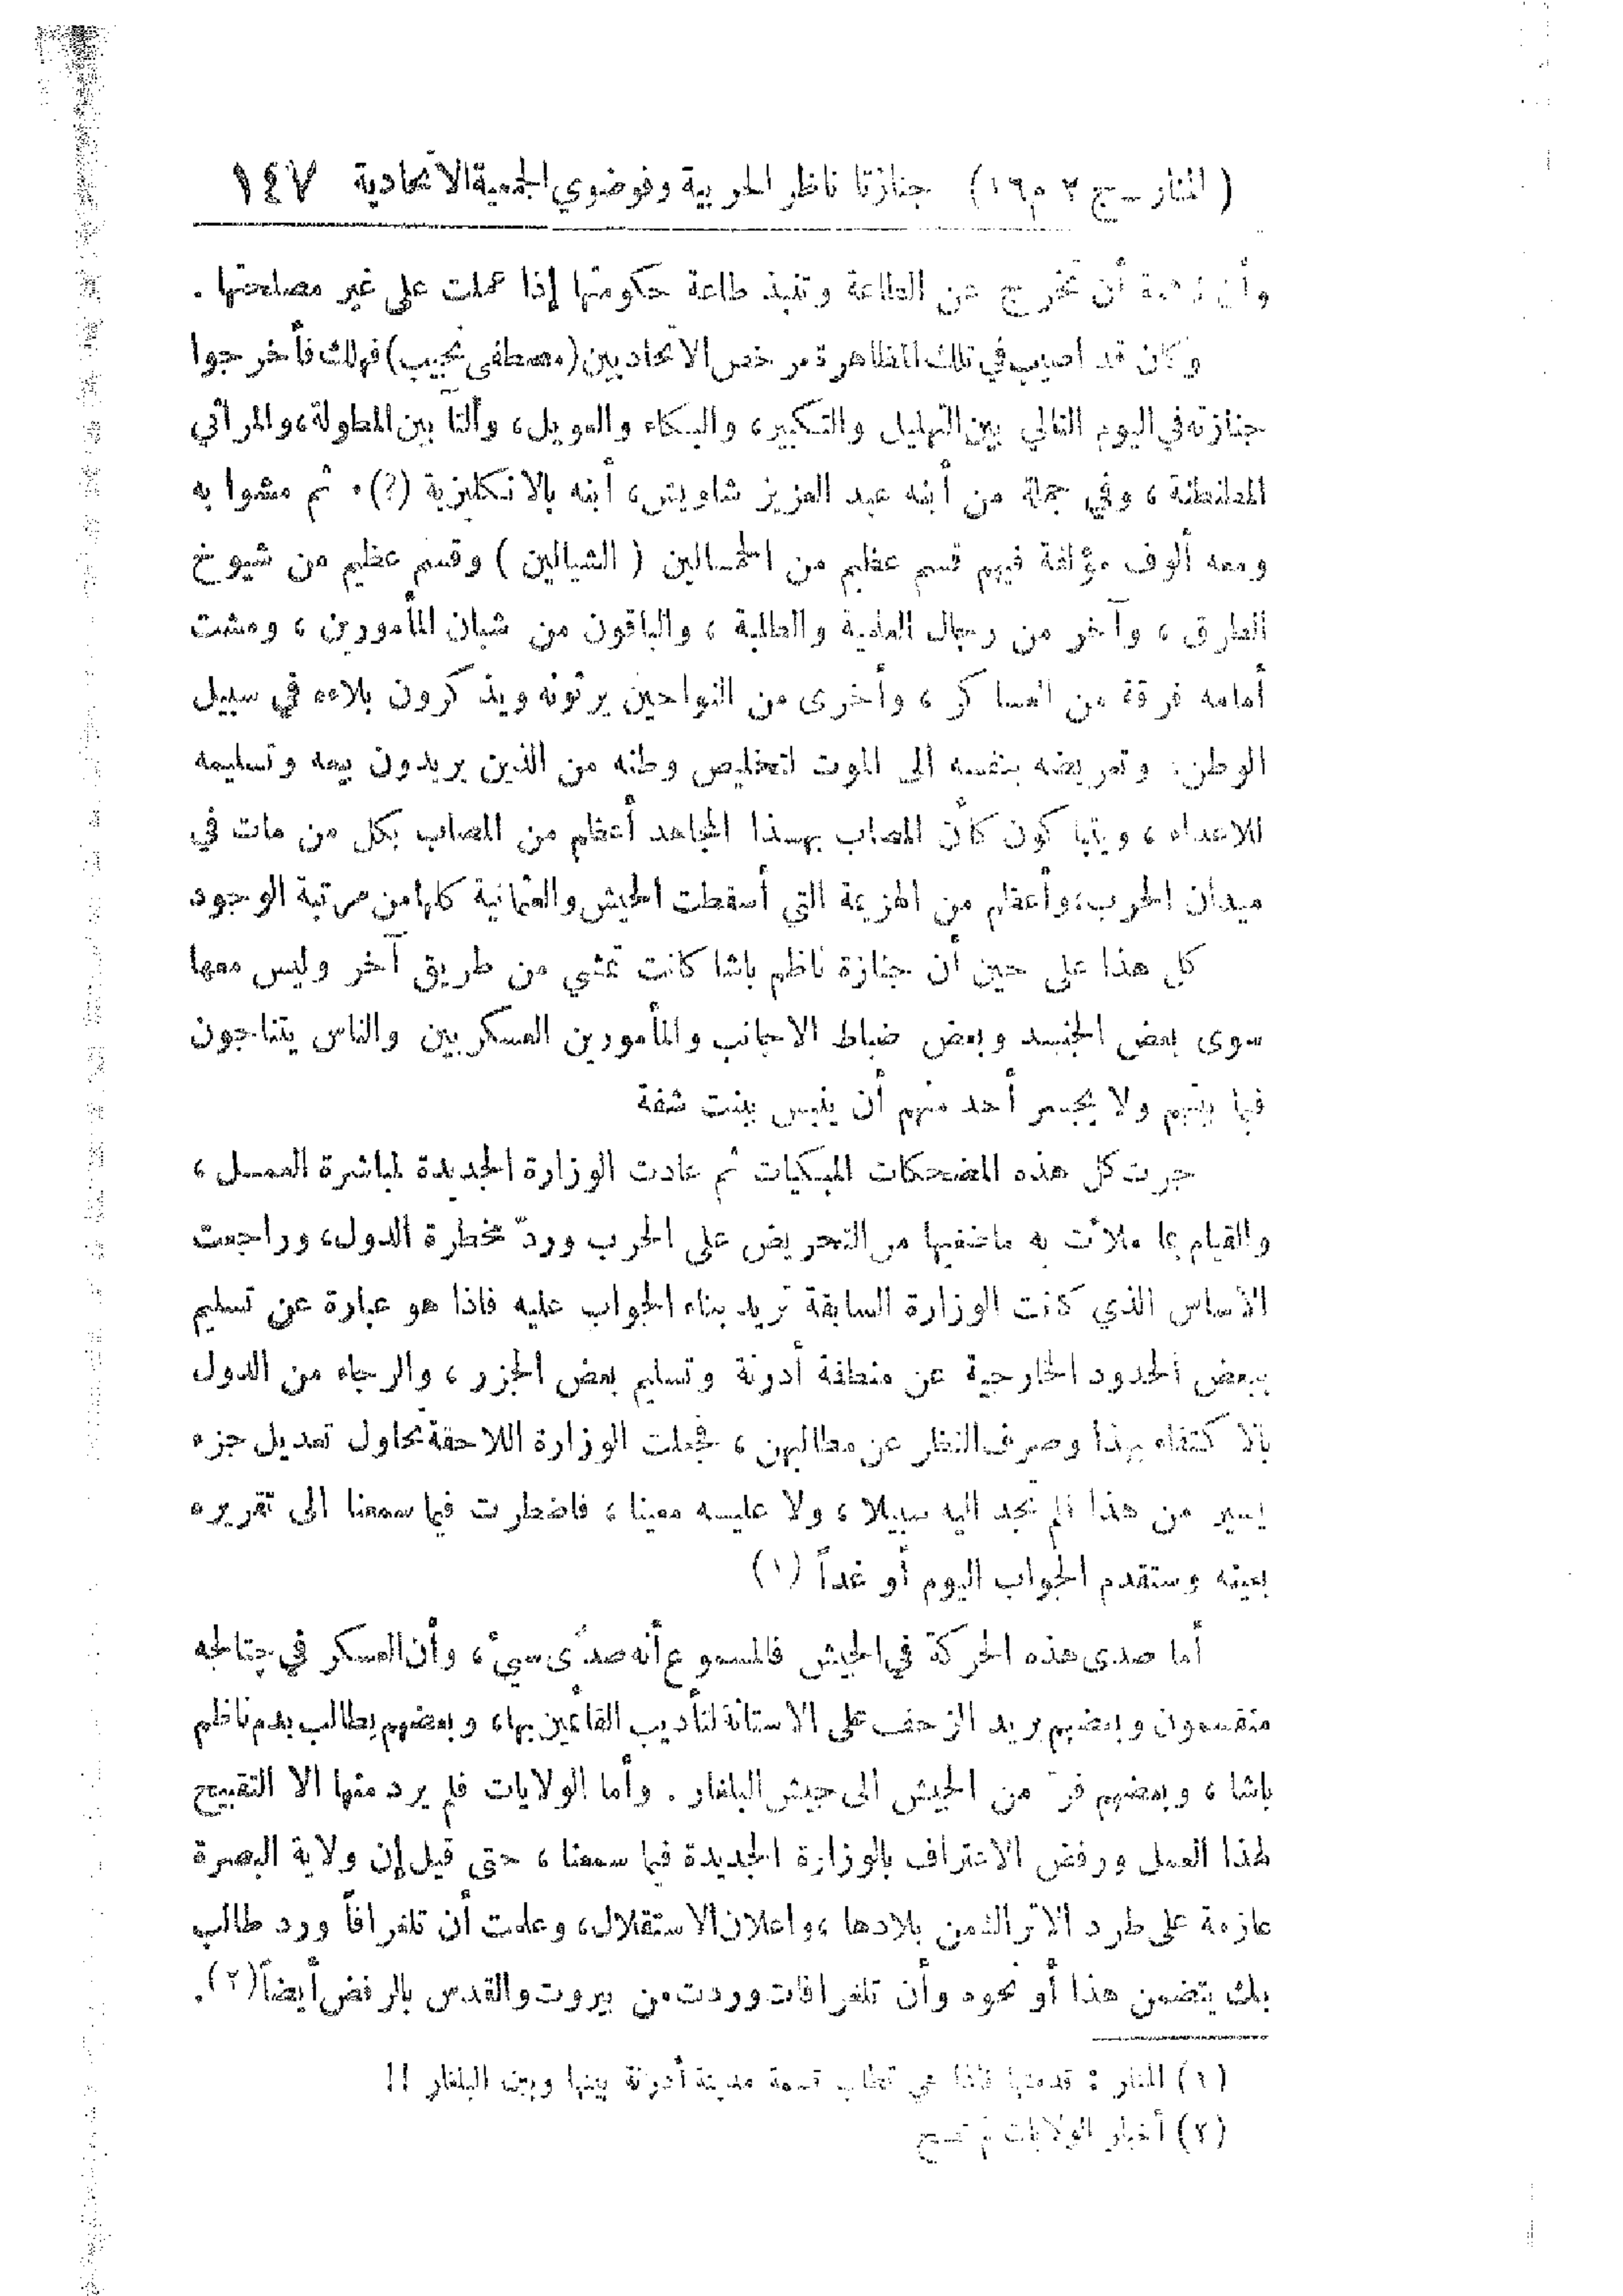 ( المنار – ج ٢ م ١٦ ) جنازتا ناظر الحربية وفوضوي الجمعية الاتحادية ١٤٧
وأن للأمة أن تخرج عن الطاعة وتنبذ طاعة حكومتها إذا عملت على غير مصلحتها .
وكان قد اصيب في تلك المظاهرة من الاتحاديين (مصطفى نجيب) فهلك فأخرجوا
جنازته في اليوم التالي بين التهليل والتكبير، والبكاء والعويل، والتآبين المطولة، والمراثي
المطنطنة ، وفي جملة من أبنه عبد العزيز شاويش ، أبنه بالانكليزية (؟) . ثم مشوا به
ومعه ألوف مؤلفة فيهم قسم عظيم من الحمالين ( الشيالين ) وقسم عظيم من شيوخ
الطرق ، وآخر من رجال العلمية والطلبة ، والباقون من شبان المأمورين ، ومشت
أمامه فرقة من العساكر ، وأخرى من النواحين يرثونه ويذكرون بلاءه في سبيل
الوطن ، وتعريضه بنفسه الى الموت لتخليص وطنه من الذين يريدون بيعه وتسليمه
للاعداء ، ويتباكون كأن المصاب بهذا المجاهد أعظم من المصاب بكل من مات في
ميدان الحرب، وأعظم من الهزيمة التي أسقطت الجيش والعثمانية كلها من مرتبة الوجود
كل هذا على حين أن جنازة ناظم باشا كانت تمشي من طريق آخر وليس معها
سوى بعض الجند وبعض ضباط الاجانب والمأمورين العسكريين والناس يتناجون
فيما بينهم ولا يجسر أحد منهم أن ينبس ببنت شفة
جرت كل هذه المضحكات المبكيات ثم عادت الوزارة الجديدة لمباشرة العمل ،
والقيام بما ملأت به ماضغيها من التحريض على الحرب وردّ مخطرة الدول، وراجعت
الاساس الذي كانت الوزارة السابقة تريد بناء الجواب عليه فاذا هو عبارة عن تسليم
ببعض الحدود الخارجية عن منطقة أدرنة وتسليم بعض الجزر ، والرجاء من الدول
بالاكتفاء بهذا وصرف النظر عن مطالبهن ، فجعلت الوزارة اللاحقة تحاول تعديل جزء
يسير من هذا فلم تجد اليه سبيلا ، ولا عليه معينا ، فاضطرت فيما سمعنا الى تقريره
بعينه وستقدم الجواب اليوم أو غداً (١)
أما صدى هذه الحركة في الجيش فالمسموع أنه صدًى سيئ ، وأن العسكر في چتالجه
منقسمون وبعضهم يريد الزحف على الاستانة لتأديب القائمين بها، وبعضهم يطالب بدم ناظم
باشا ، وبعضهم فرّ من الجيش الى جيش البلغار . وأما الولايات فلم يرد منها الا التقبيح
لهذا العمل ورفض الاعتراف بالوزارة الجديدة فيما سمعنا ، حتى قيل إن ولاية البصرة
عازمة على طرد الاتراك من بلادها ، واعلان الاستقلال، وعلمت أن تلغرافاً ورد طالب
بك يتضمن هذا أو نحوه وأن تلغرافات وردت من بيروت والقدس بالرفض أيضاً (٢) .
(١) المنار : قدمتها فاذا هي تطلب قسمة مدينة أدرنة بينها وبين البلغار !!
(٢) أخبار الولايات لم تصح